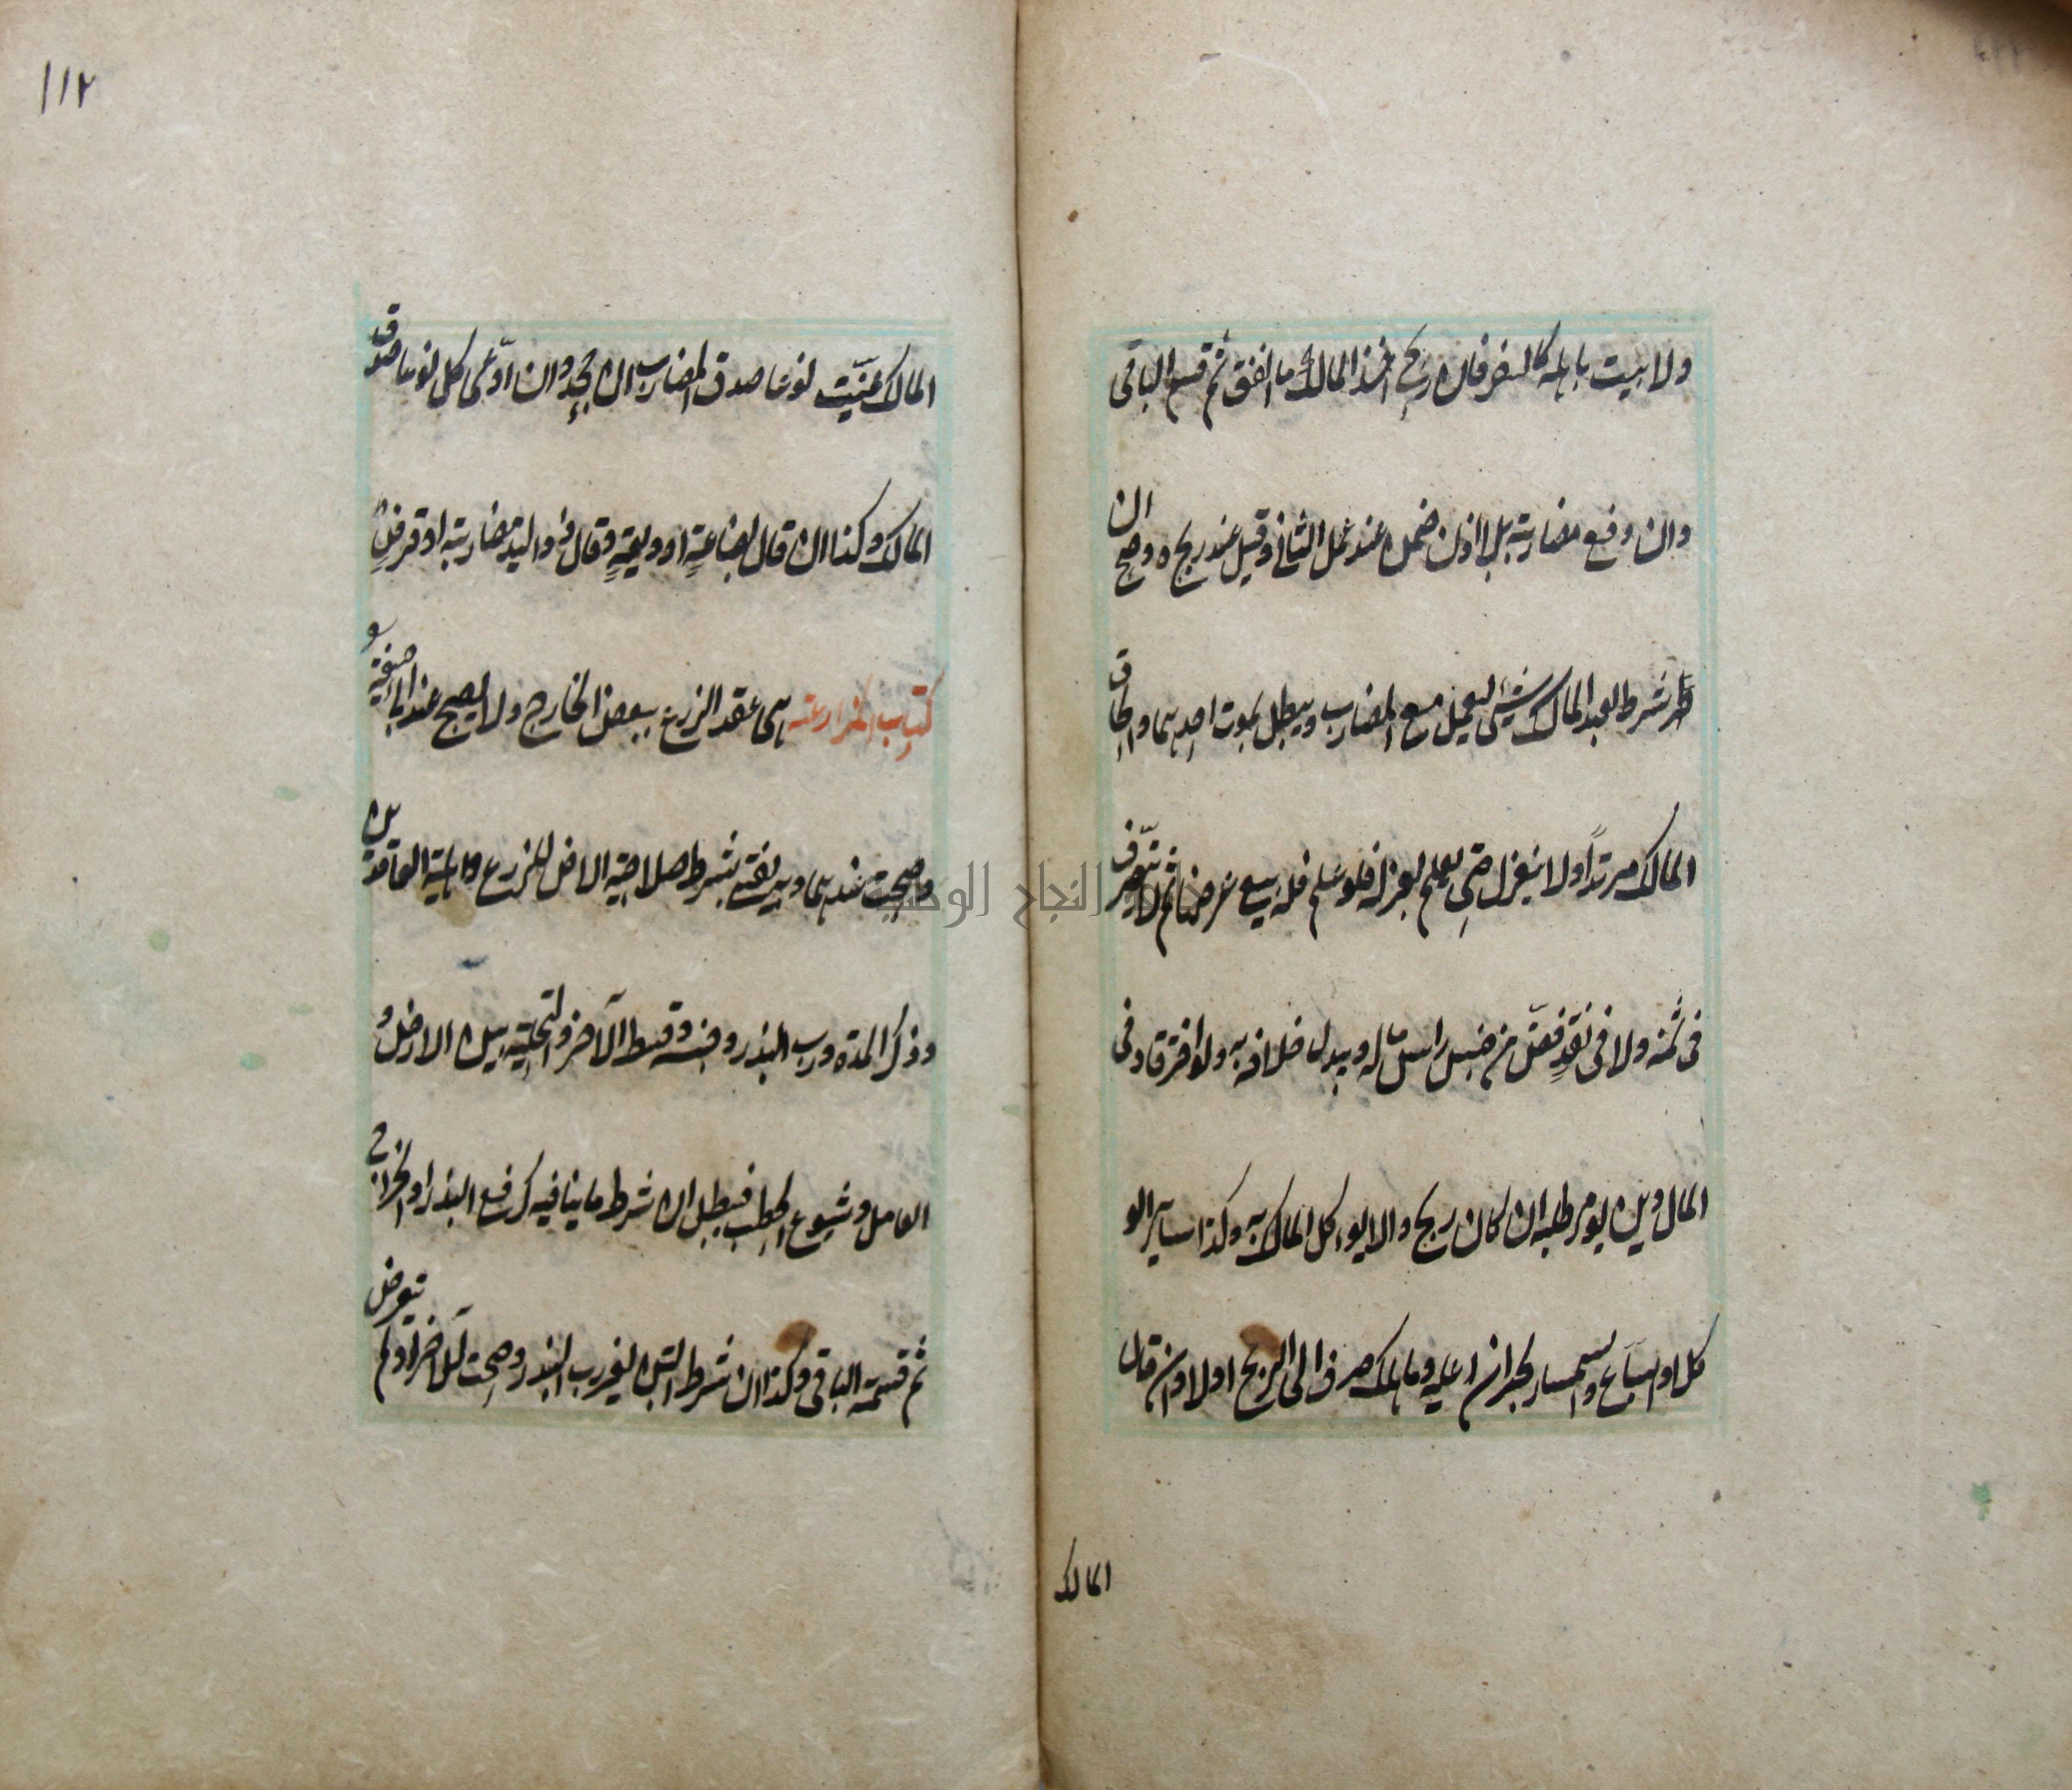 ولا يبيت باهله كالسفر فان ربح اخذ المالك ما انفق ثم قسم الباقى
وان دفع مضاربة بلا اذن ضمن عند عمل الثانى وقيل عند ربحه وصح ان
شرط لعبد المالك شئ ليعمل مع المضارب ويبطل بموت احدهما ولحاق
المالك مرتدا ولا ينعزل حتى يعلم بعزله فلو علم فله بيع عرضها ثم لا يتصرف
فى ثمنه ولا فى نقد نض من جنس راس ماله ويبدل خلافه به ولو افترقا وفى
المال دين لزمه طلبه ان كان ربح والا يوكل المالك به وكذا ساير الو
كلا والبياع والسمسار يجبران عليه وما هلك صرف الى الربح اولا وان قال
المالك
١١٢
المالك عينت نوعا صدق المضارب ان جحد وان ادعى كل نوعا صدق
المالك وكذا ان قال بضاعة او وديعة وقال ذو اليد مضاربة او قرض
كتاب المزارعة هى عقد الزرع ببعض الخارج ولا يصح عند ابى حنيفة و
صحت عندهما وبه يفتى بشرط صلاحية الارض للزرع واهلية العاقدين
وذكر المدة ورب البذر وجنسه وقسط الآخر والتخلية بين الارض و
العامل وشيوع الحب فيبطل ان شرط ما ينافيه كرفع البذر او الخراج
ثم قسمة الباقى وكذا ان شرط التبن لغير رب البذر وصحت للآخر او لم يتعرض